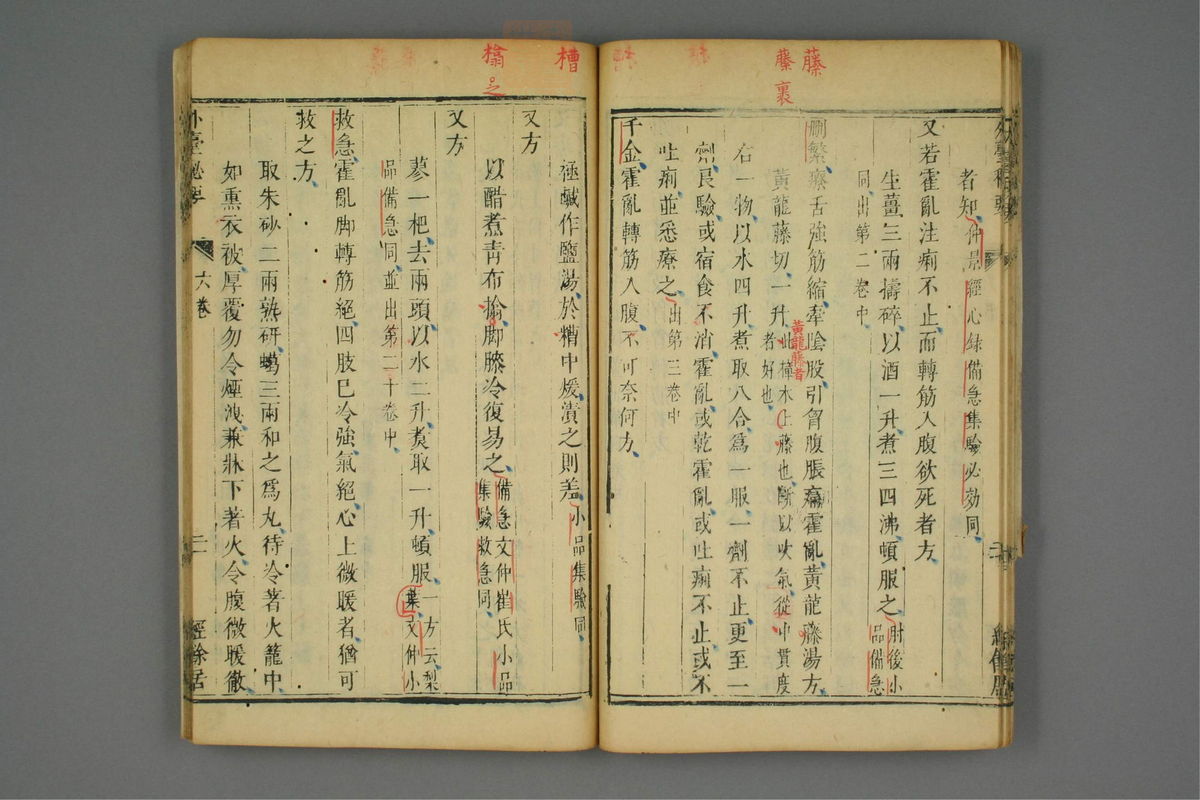 藤
藤裏
者知仲景經心錄備急集驗必効同
又若霍亂注痢不止而轉筋入腹欲死者方
生薑三兩擣碎以酒一升煮三四沸頓服之肘後小品備急
同出第二卷中
刪繁療舌強筋縮牽陰股引胷腹脹痛霍亂黃龍藤湯方
黃龍藤切一升此樟木上藤也斷以吹氣從中貫度者好也
黃龍藤者
右一物以水四升煮取八合為一服一劑不止更至一
劑良驗或宿食不消霍亂或乾霍亂或吐痢不止或不
吐痢並悉療之出第三卷中
千金霍亂轉筋入腹不可奈何方
槽
極鹹作鹽湯於糟中煖漬之則差小品集驗同
又方
以醋煮青布搨脚膝冷復易之備急文仲崔氏小品集驗救急同
又方
蓼一把去兩頭以水二升煮取一升頓服一方云梨葉文仲小
品備急同並出第二十卷中
救急霍亂脚轉筋絕四肢巳冷強氣絕心上微暖者猶可
救之方
取朱砂二兩熟研蠟三兩和之為丸待冷著火籠中
如熏衣被厚覆勿令煙洩兼牀下著火令腹微暖徹
外臺秘要
六卷
經餘居